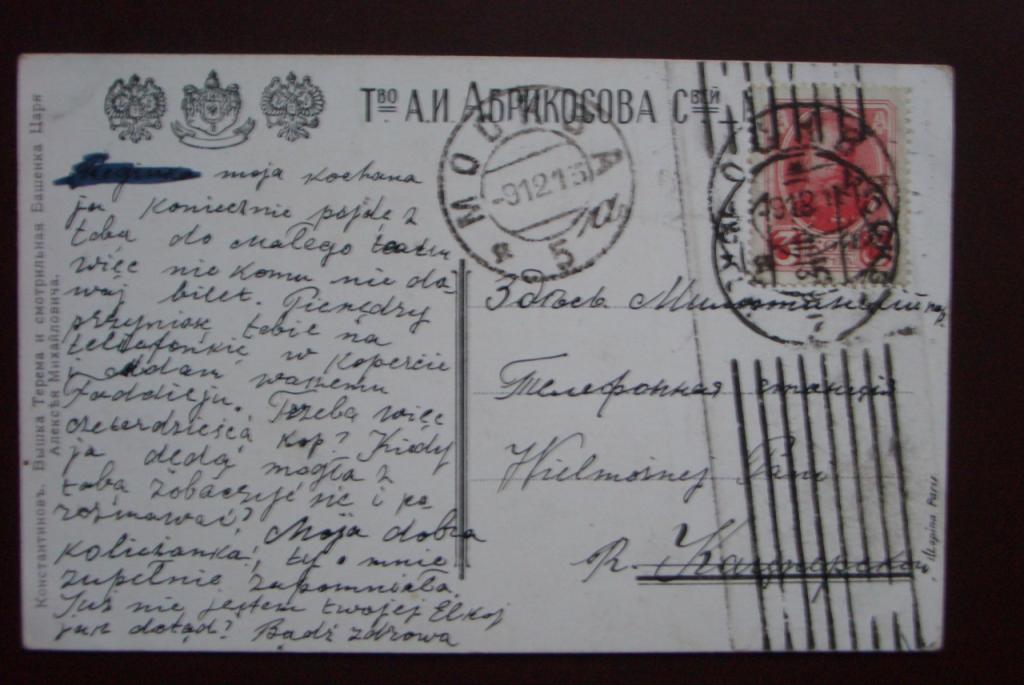 Т-во А.И. Абрикосова С-вей
Константиновъ. Вышка Терема и смотрильная Башенка Царя
Алексѣя Михайловича.
moja kochana
ja koniecznie pójdę z
tobą do małego teatru
więc nie komu nie da-
waj bilet. Pieniędzy
przyniosę tobie na
w kopercie
i oddam waszemu
Faddieju. Trzeba więc
czterdzieści kop? Kiedy
ja będą mogła z
tobą zobaczyć się i po
rozmawiać? Moja dobra
koliżanka, ty o mnie
zupełnie zapomniała.
Już nie jestem twojej Elkoj
jak dotąd? Bądź zdrowa
МОСКВА
-9 12 15
5
Здѣсь. Милютинский пер.
Телефонная станція
Wielmożnej Pani
Р.
МОСКВА